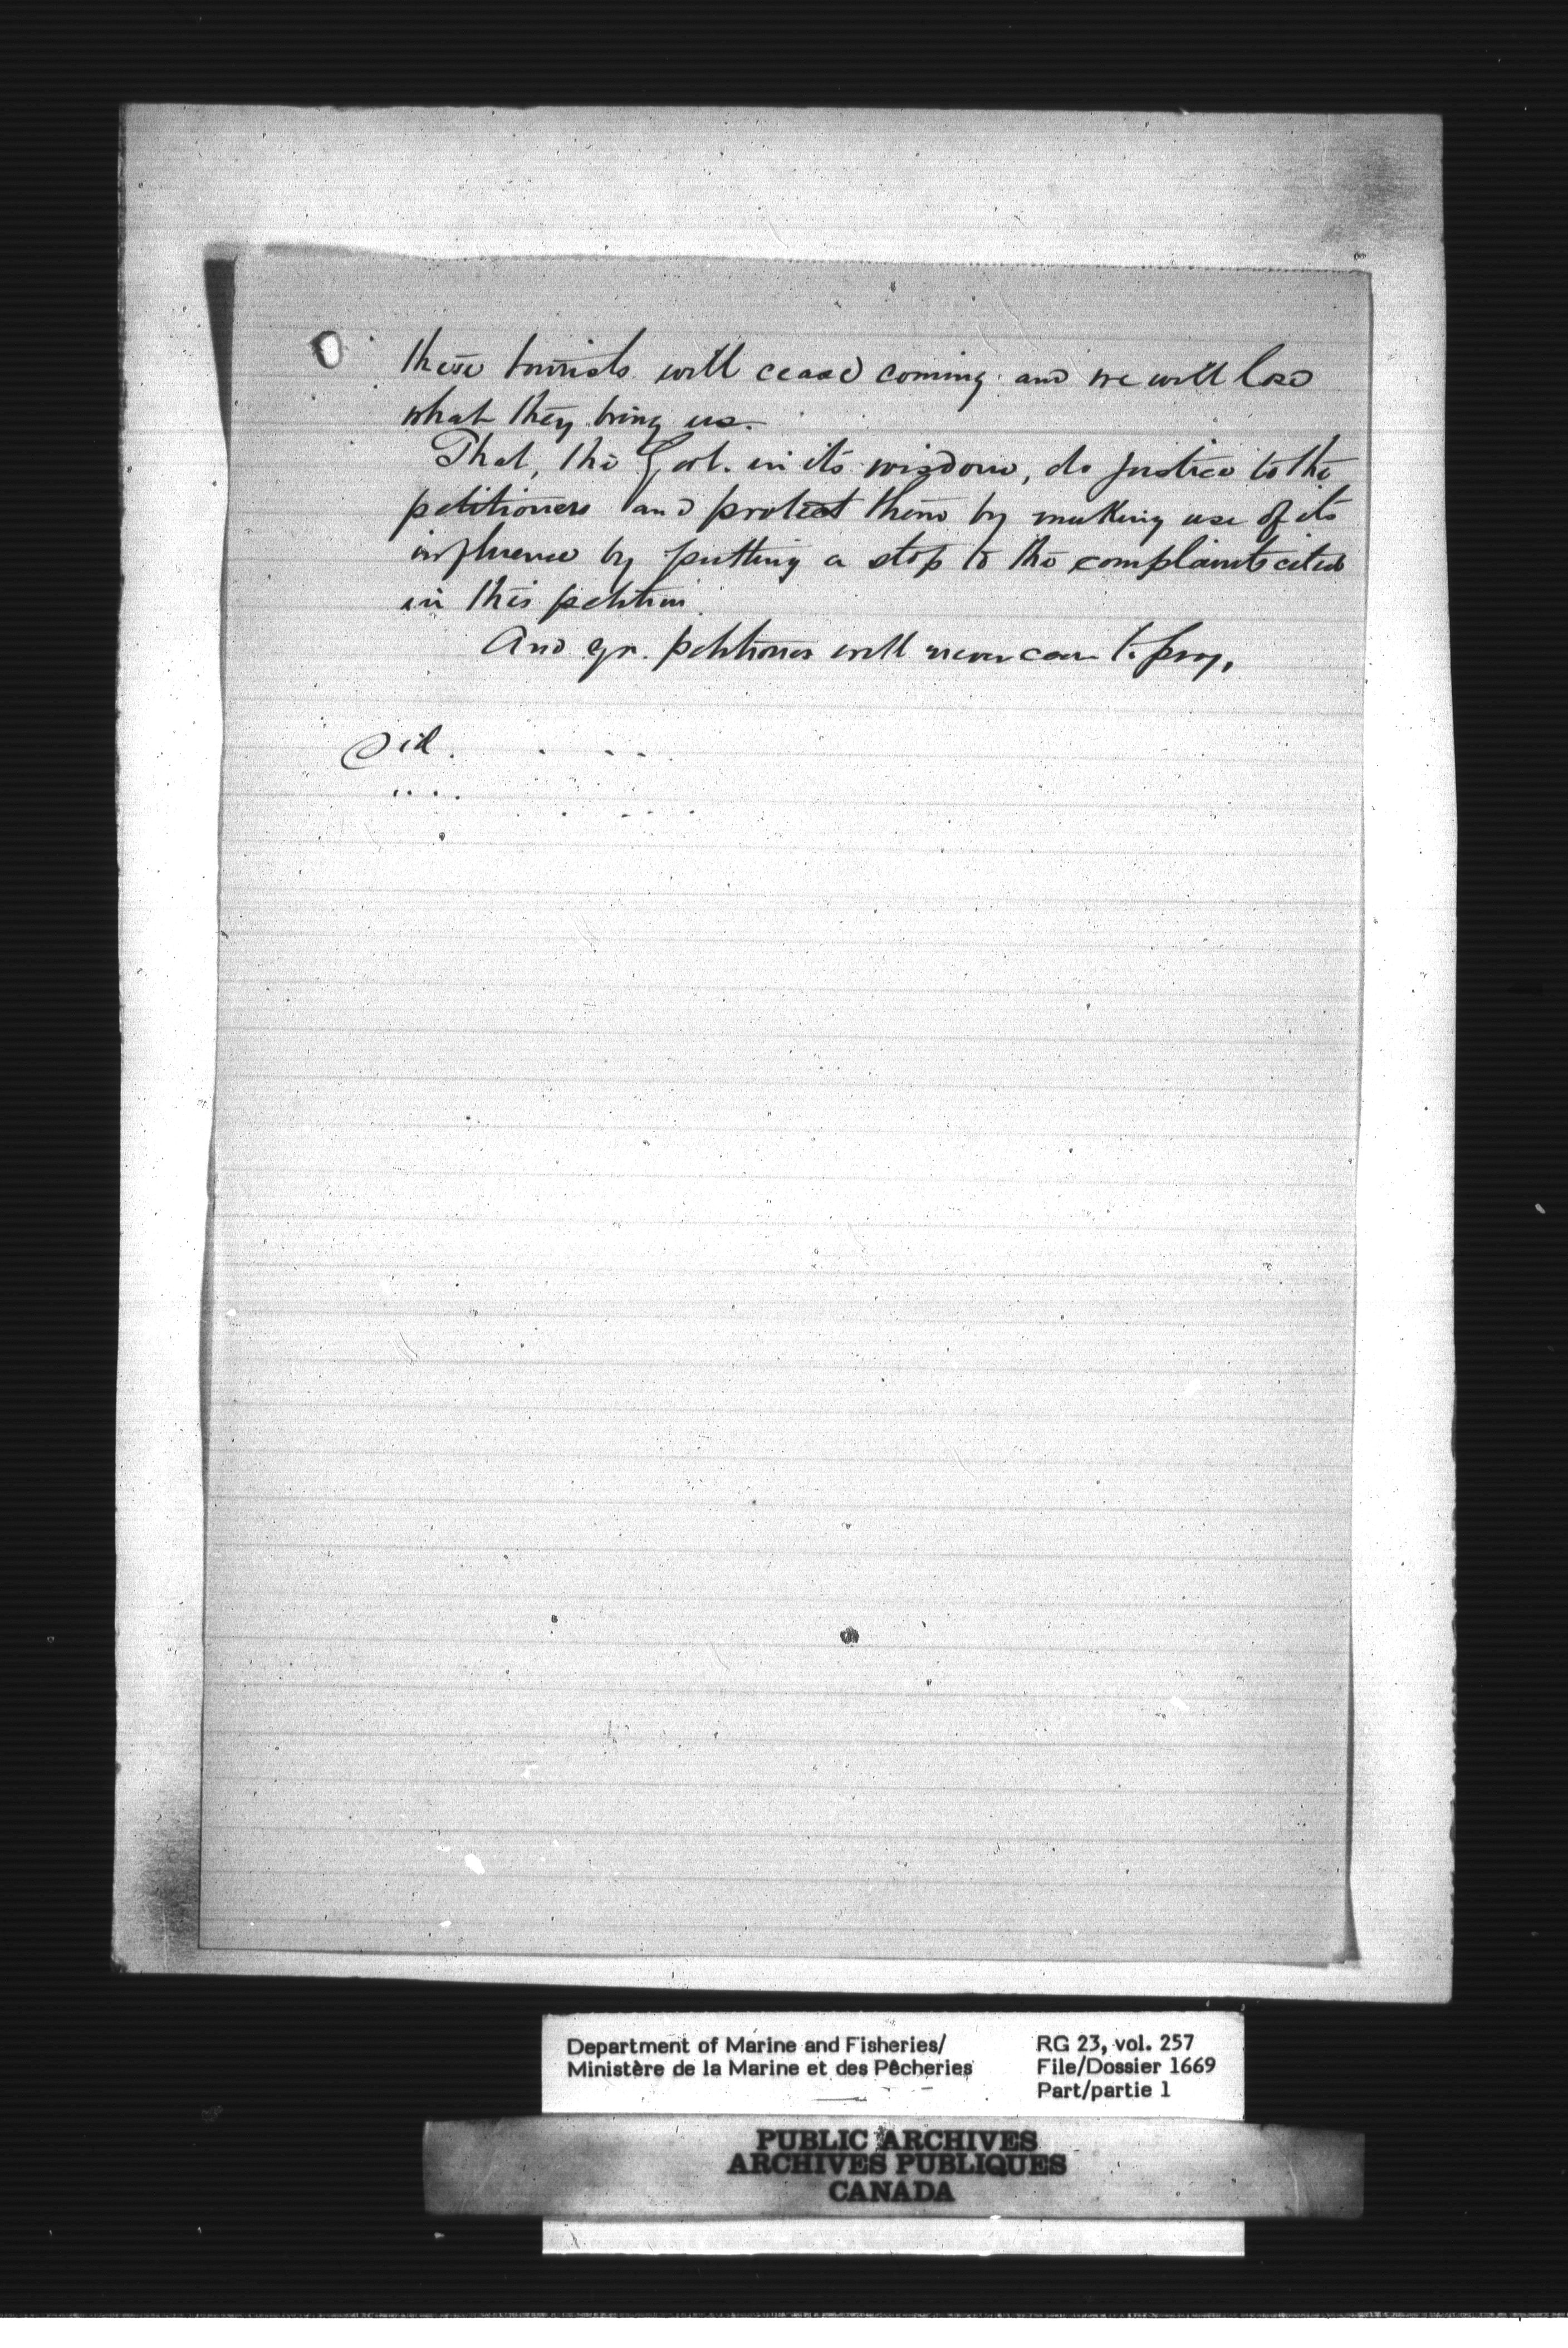 these tourists will cease coming and we will lose
what they bring us.
That, the Govt. in its wisdom, do justice to the
petitioners and protect them by making use of its
influence by putting a stop to the complaints cited
in this petition.
And yr. petitioners will never cease to pray,
Department of Marine and Fisheries/
Ministère de la Marine et des Pêcheries
RG 23, vol. 257
File/Dossier 1669
Part/partie 1
PUBLIC ARCHIVES
ARCHIVES PUBLIQUES
CANADA